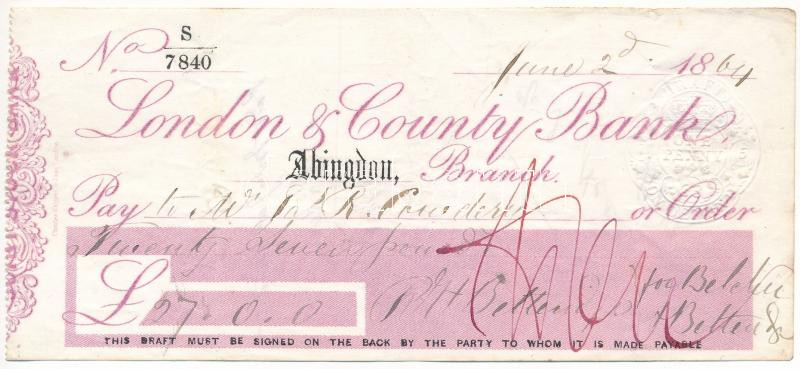 No S
7840
June 2d. 1864
London & County Bank,
Abingdon, Branch.
Pay to Mr R. or Order
Twenty Seven pounds
£ 27.0.0
THIS DRAFT MUST BE SIGNED ON THE BACK BY THE PARTY TO WHOM IT IS MADE PAYABLE